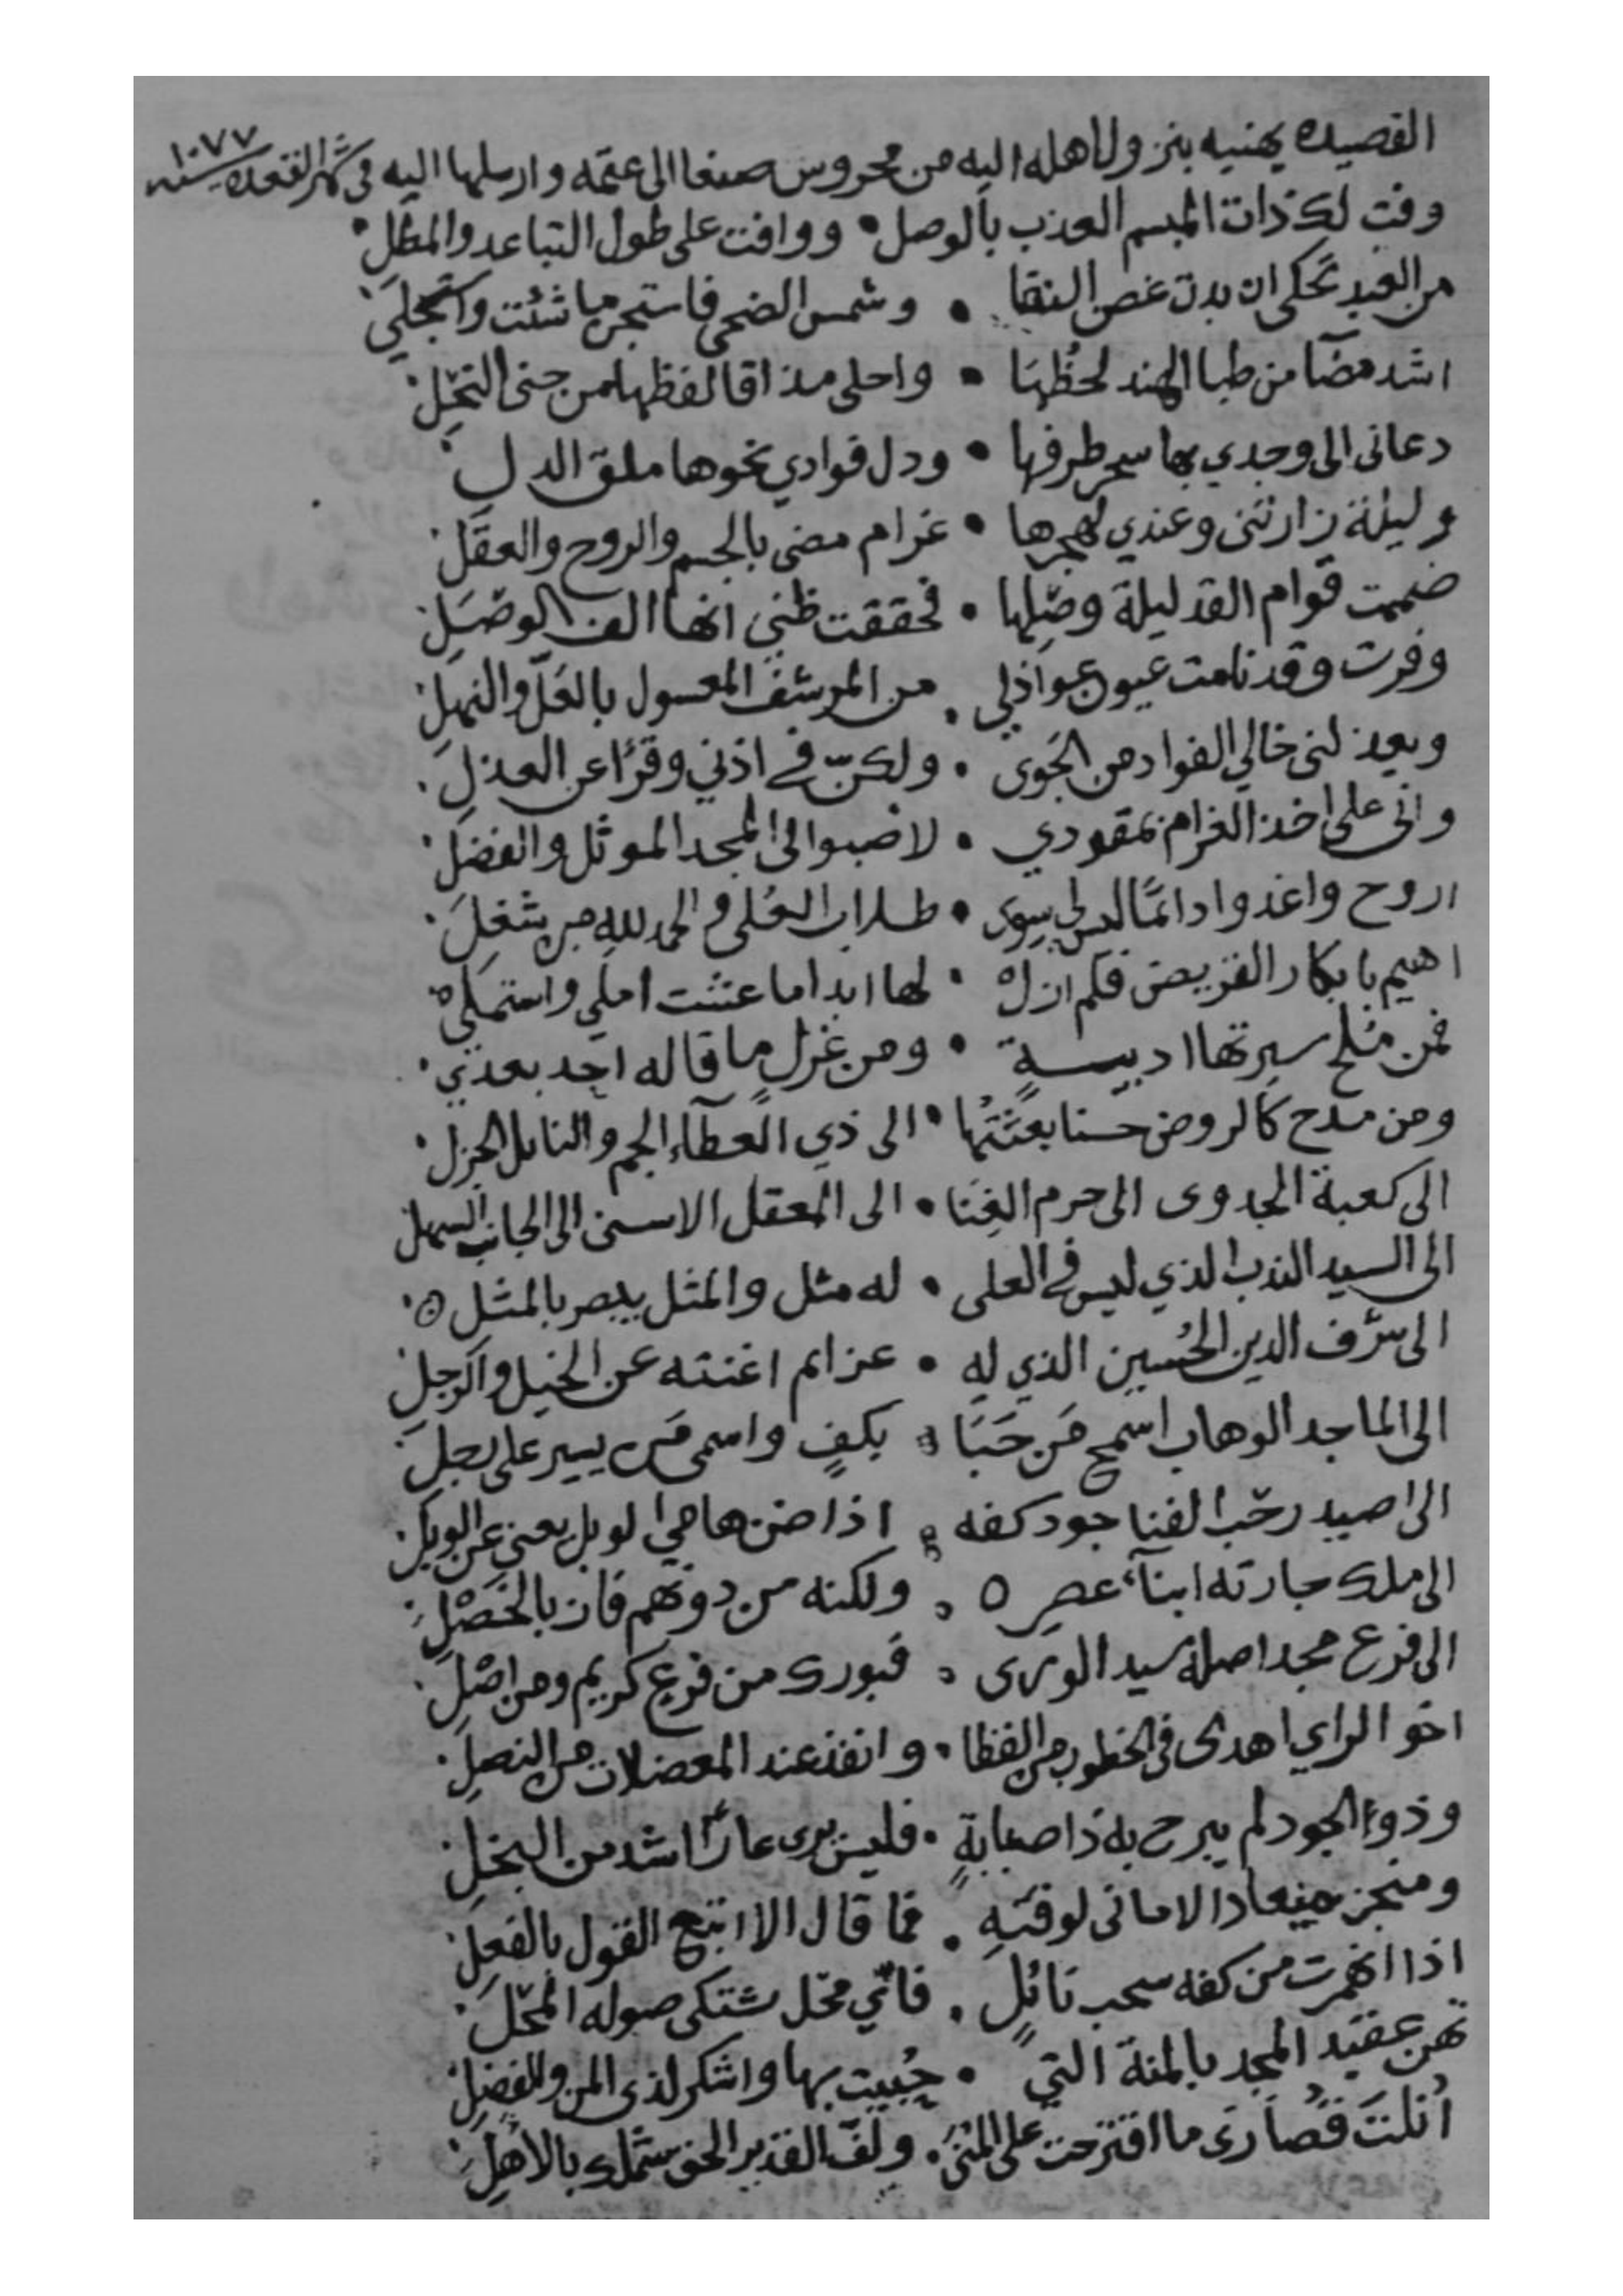 القصيده يهنيه بنزول اهله اليه من محروس صنعا الى عتمه وارسلها اليه في شهر القعده سنه ١٠٧٧
وفت لك ذات المبسم العذب بالوصل • ووافت على طول التباعد والمطل
من الغيد تحكي ان بدت غصن النقا • وشمس الضحى فاستجر ما شئت واستجلي
اشد مضا من ظبا الهند لحظها • واحلى مذاقا لفظها من جنى النحل
دعاني الى وجدي بها سحر طرفها • ودل فوادي نحوها ملق الدل
وليلة زارتني وعندي لهجرها • غرام مضى بالجسم والروح والعقل
ضممت قوام القد ليلة وصلها • فحققت ظني انها الف الوصل
وفزت وقد نامت عيون عواذلي • من المرشف المعسول بالعل والنهل
ويعذلني خالي الفواد من الجوى • ولكن في اذني وقرا عن العذل
واني على اخذ الغرام بمقودي • لاصبوا الى المجد الموثل والفضل
اروح واغدوا دائما ليس لي سوى • طلاب العلى والحمد لله من شغل
اهيم بابكار القريض فلم ازل • لها ابدا ما عشت املي واستملي
فمن ملح سيرتها ادبيةٍ • ومن غزل ما قاله احد بعدي
ومن مدح كالروض حسنا بعثتها • الى ذي العطاء الجم والنايل الجزل
الى كعبة الجدوى الى حرم الغنا • الى المعقل الاسنى الى الجانب السهل
الى السيد الندب الذي ليس في العلى • له مثل والمثل يبصر بالمثل
الى شرف الدين الحسين الذي له • عزايم اغنته عن الخيل والرجل
الى الماجد الوهاب اسمح من حبا • بكفٍ واسمى من يسير على رجل
الى اصيد رحب الفنا جود كفه • اذا ضن هامي الوبل يغني عن الوبل
الى ملك جارته ابناء عصره • ولكنه من دونهم فاز بالخصل
الى فرع مجد اصله سيد الورى • فبورك من فرع كريم ومن اصل
اخو الراي اهدى في الخطوب من القطا • وانفذ عند المعضلات من النصل
وذو الجود لم يبرح به ذا صبابةٍ • فليس يرى عارا اشد من البخل
ومنجز ميعاد الاماني لوقته • فما قال الا اتبع القول بالفعل
اذا انهمرت من كفه سحب نائلٍ • فايّ محل شتكى صوله المحل
تهن عقيد المجد بالمنة التي • حُبيت بها واشكر لذي المن والفضل
اُنلت قُصارى ما اقترحت على المنى • ولفّ القدير الحق شملك بالاهل